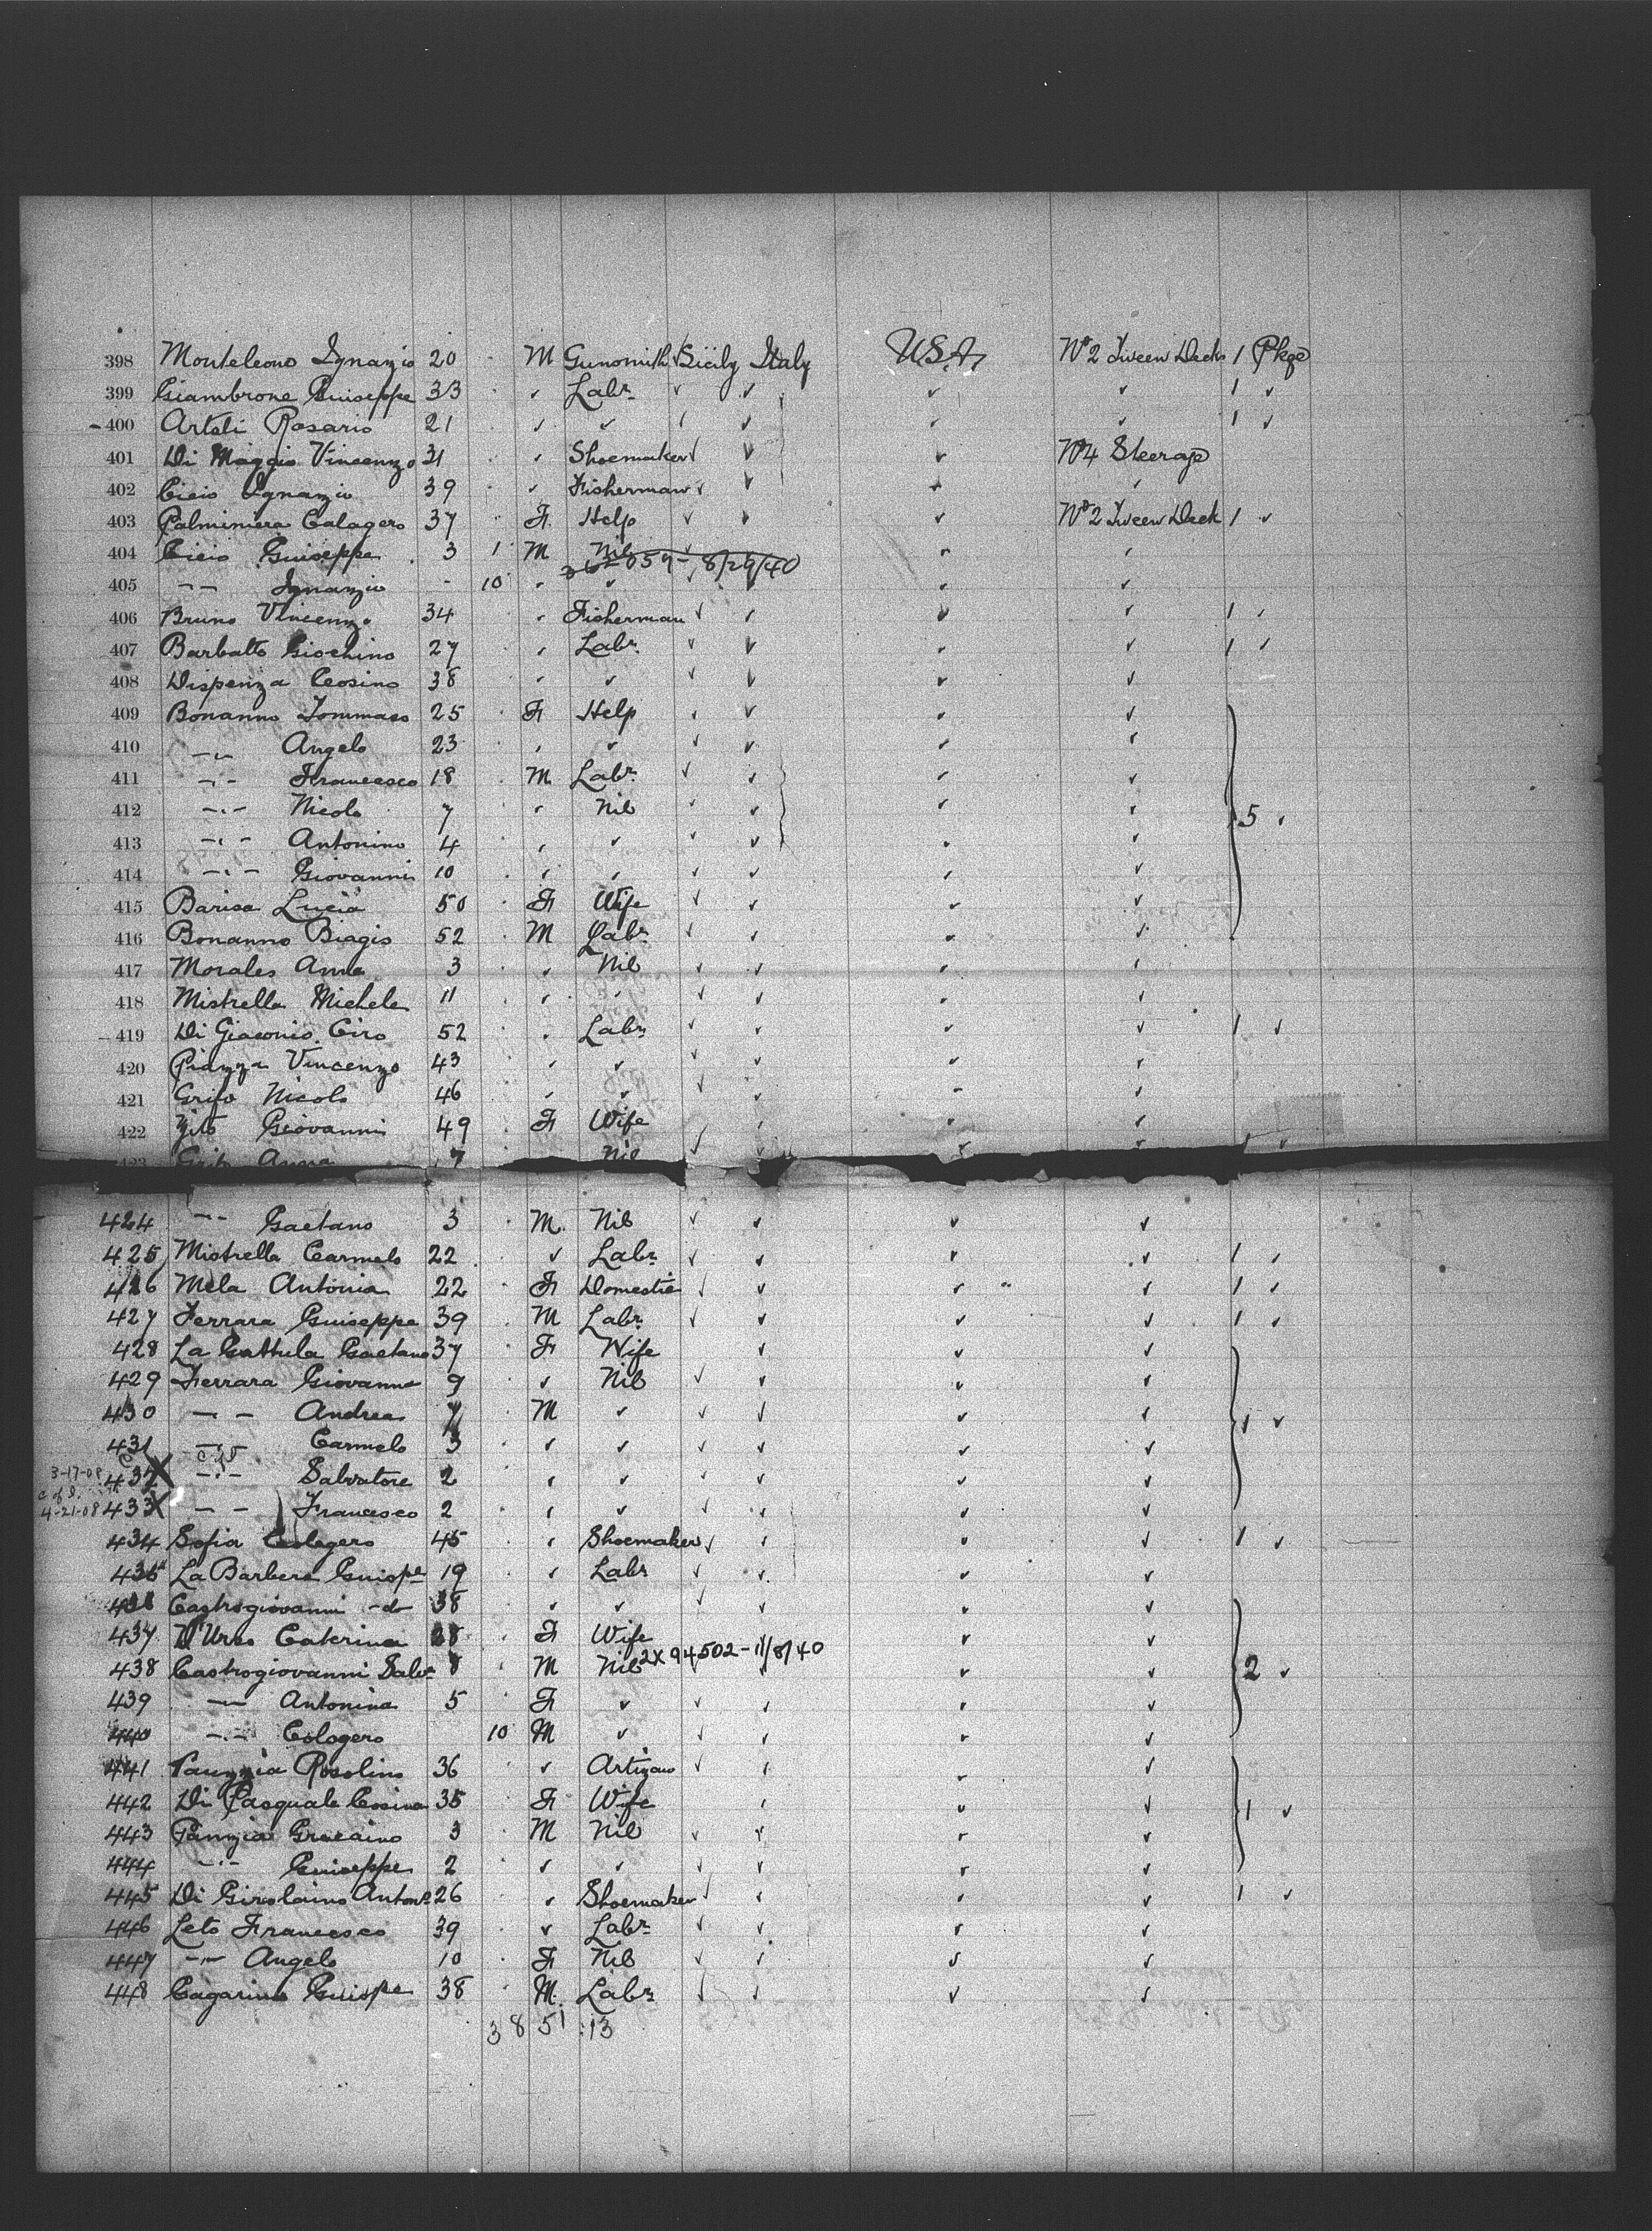 398 Monteleone Ignazio 20 M Gunsmith Sicily Italy U.S.A. No 2 Tween Decks 1 Pkge
399 Giambrone Guiseppe 33 " Labr 1 "
400 Arteli Rosario 21 " " 1 "
401 Di Maggio Vincenzo 31 " Shoemaker No 4 Steerage
402 Cicio Ignazio 39 " Fisherman
403 Palminiera Calagero 37 F. Help No 2 Tween Deck 1 "
404 Cicio Guiseppe 3 1 M Nil
8/29/40
405 -"- Ignazio - 10 " "
406 Bruno Vincenzo 34 " Fisherman 1 "
407 Barbatto Giochino 27 " Labr 1 "
408 Dispenza Cosino 38 " "
409 Bonanno Tommaso 25 F Help
410 -"- Angelo 23 " "
411 -"- Francesco 18 M Labr
412 -"- Nicolo 7 " Nil 5 "
413 -"- Antonino 4 " "
414 -"- Giovanni 10 " "
415 Barisa Lucia 50 F Wife
416 Bonanno Biagio 52 M Labr
417 Morales Anna 3 " Nil
418 Mistrella Michele 11 " "
419 Di Giacomo Ciro 52 " Labr 1 "
420 Piazza Vincenzo 43 " "
421 Grifo Nicolo 46 " "
422 Zito Giovanni 49 F Wife
423 Anna 7 Nil 1 "
424 -"- Gaetano 3 M. Nil
425 Mistrella Carmelo 22 " Labr 1 "
426 Mela Antonia 22 F Domestic 1 "
427 Ferrara Guiseppe 39 M Labr 1 "
428 La Gattula Gaetano 37 F Wife
429 Ferrara Giovanna 9 " Nil
430 -"- Andrea 7 M " 1 "
431 -"- Carmelo 3 " "
3-17-08 432 X -"- Salvatore 2 " "
C of D.
4-21-08 433 X -"- Francesco 2 " "
434 Sofia Calogero 45 " Shoemaker 1 "
435 La Barbera Guispe 19 " Labr
436 Castrogiovanni -do 38 " "
437 D'Urso Caterina 28 F Wife
2X94502-11/8/40
438 Castrogiovanni Salv 8 M Nil 2 "
439 -"- Antonina 5 F "
440 -"- Cologero 10 M "
441 Panzia Rosolino 36 " Artizan
442 Di Pasquale Cosina 35 F Wife 1 "
443 Panzia 3 M Nil
444 -"- Guiseppe 2 " "
445 Di Girolaino Anton 26 " Shoemaker 1 "
446 Leto Francesco 39 " Labr
447 -"- Angelo 10 F Nil
448 Cagarino Guispe 38 M. Labr
38 51 :13